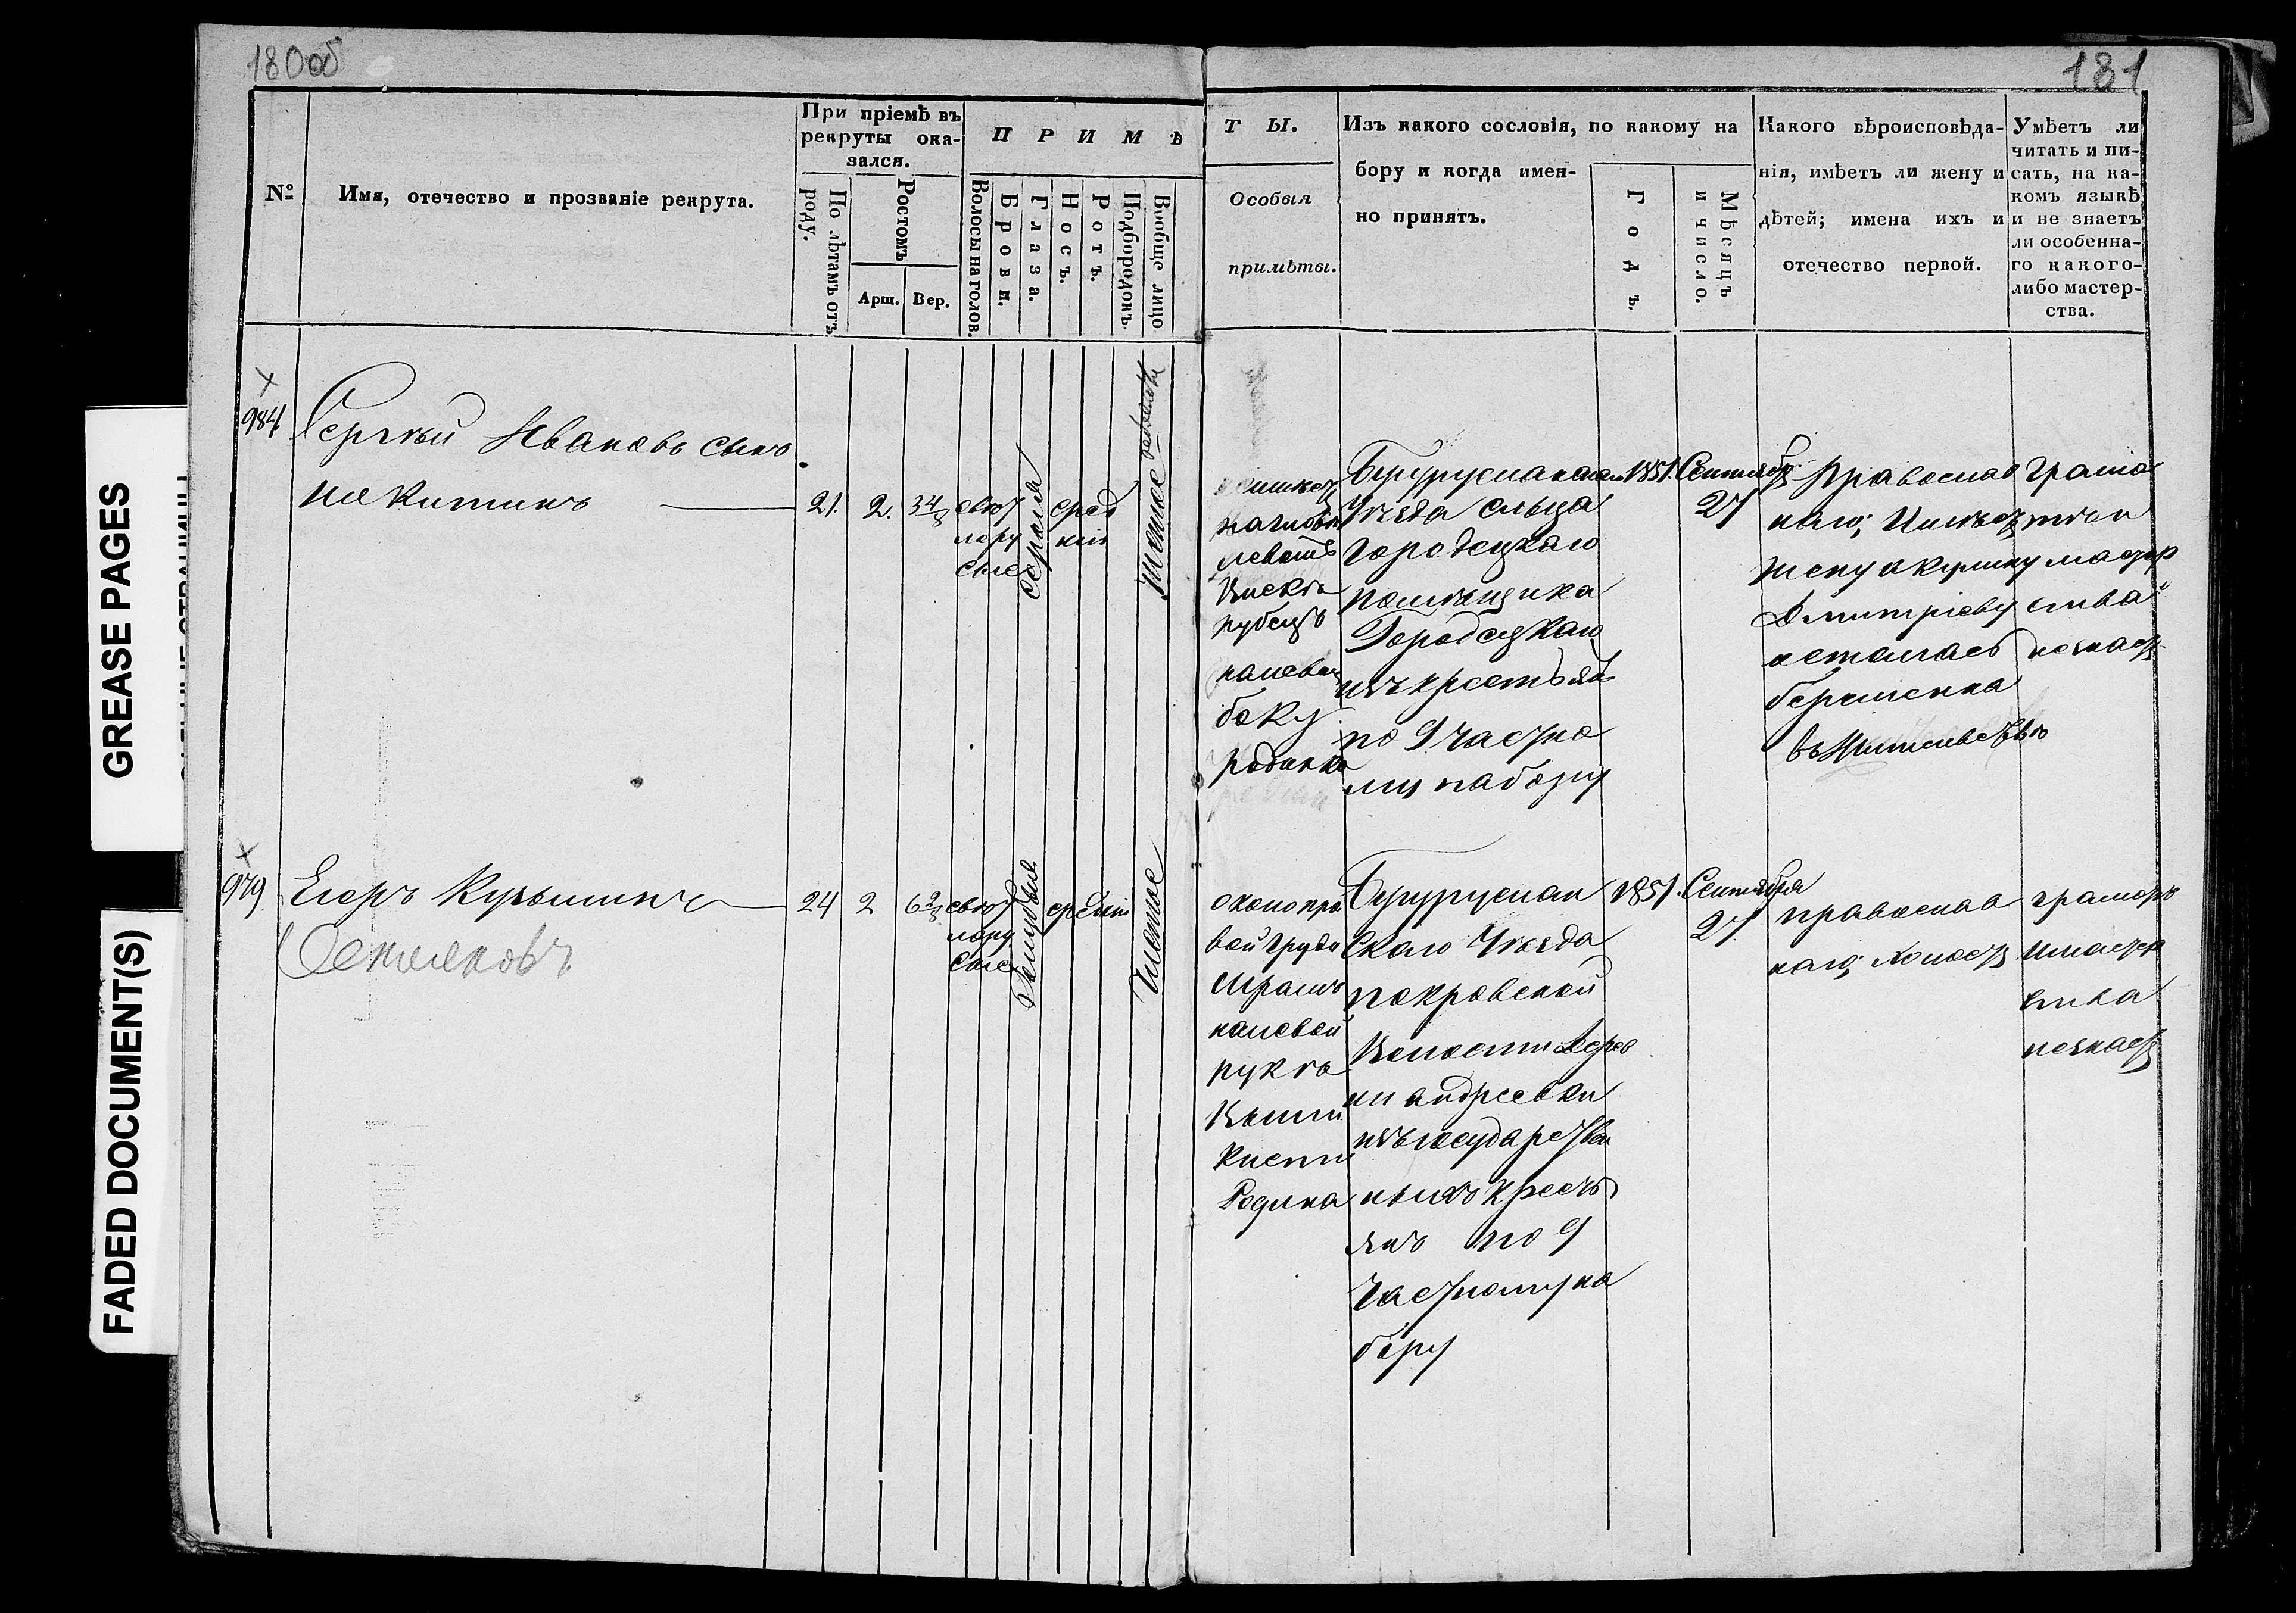 180об
181
GREASE PAGES
FADED DOCUMENT(S)
№
Имя, отечество и прозваніе рекрута.
При пріемѣ въ
рекруты ока-
зался.
По лѣтамъ отъ
роду.
Ростомъ
Арш. Вер.
ПРИМѢ
Волосы на голов.
Брови.
Глаза.
Носъ.
Ротъ.
Подбородокъ
Вообще лицо
ТЫ.
Особыя
примѣты.
Изъ какого сословія, по какому на
бору и когда имен-
но принятъ.
Годъ.
Мѣсяцъ
и число.
Какого вѣроисповѣда-
нія, имѣетъ ли жену и
дѣтей; имена ихъ и
отечество первой.
Умѣетъ ли
читать и пи-
сать, на ка-
комъ языкѣ
и не знаетъ
ли особенна-
го какого-
либо мастер-
ства.
984
Сергѣй Ивановъ сынъ
Никитинъ
21. 2. 3 4/8
свѣт
лору
сые
серыя
сред
ніи
чистое
рубецъ
на левом
боку
родинка
Бугурусланскаго
Уѣзда сельца
Городецкаго
помѣщика
Городецкаго
изъ крестьянъ
по 9 частно
му набору
1851.
Сентября
27
Православ
наго; Имѣет
жену акулину
Дмитріеву
осталась
беременна
Грамо
мастер
ства
незнает
979
Егоръ Кузьминъ
24 2 6 2/8
свѣт
лору
сые
голубые
средніи
чистое
около пра
вой груди
шрамъ
налевой
рукѣ
выши
кисти
Родина
Бугуруслан
скаго Уѣзда
покровской
Волости Дерев
ни андреевки
изъ государствен
ныхъ кресть
янъ по 9
частному на
бору
1851.
Сентября
27
православ
наго; холост
грамоты
имастер
ства
незнает